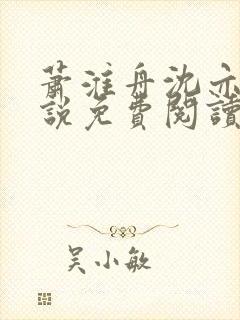 蕭淮舟沈亦
說免費閱讀
吴小敏